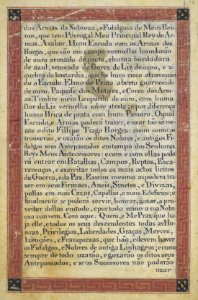 das Armas da Nobreza, e Fidalguia de Meus Rei-
nos, que tem Portugal Meu Principal Rey de Ar-
mas. A saber. Hum Escudo com as Armas dos
Borges, que são em campo vermelho hum Leão
de ouro armado de preto, e huma bordadura
de azul, semeada de Flores de Liz de ouro, e a
quebra da bastardia, hum risco atravessado
do Escudo. Elmo de Prata aberto guarnecido
de ouro. Paquife dos Metaes, e Cores das Armas
Timbre meio Leopardo de ouro, com huma
flor de Liz vermelha sobre a testa, e por differença
huma Brica de prata com hum Passaro. O qual
Escudo, e Armas poderá trazer, e usar tão so-
mente o dito Filippe Tiago Borges, assim como as
trouxerão, e usarão os ditos Nobres, e antigos Fi-
dalgos seus Antepassados em tempo dos Senhores
Reys Meus Antecessores: e com e com ellas pode-
rá entrar em Batalhas, Campos, Reptos, Esca-
ramuças, e exercitar todos os mais actos licitos
da Guerra, e da Paz. E assim mesmo as poderá tra-
zer em seus Firmaes, Aneis, Sinetes, e Divizas,
pollas em suas Cazas, Capellas, e mais Edeficios, e
finalmente se poderá servir, honrar, gozar, e a-
proveitar dellas em tudo, e por tudo como a sua No-
breza convem. Com que Quero, e Me Praz que ha-
ja elle, e todos os seus descendentes todas as Ho-
nras, Privilegios, Liberdades, Graças, Mercês,
Izenções, e Franquezas, que hão, e devem haver
os Fidalgos, e Nobres de antiga Linhagem, e como
sempre de todo uzarão, e gozarão os ditos seus
Antepassados, e os seus Successores não poderão
uzar